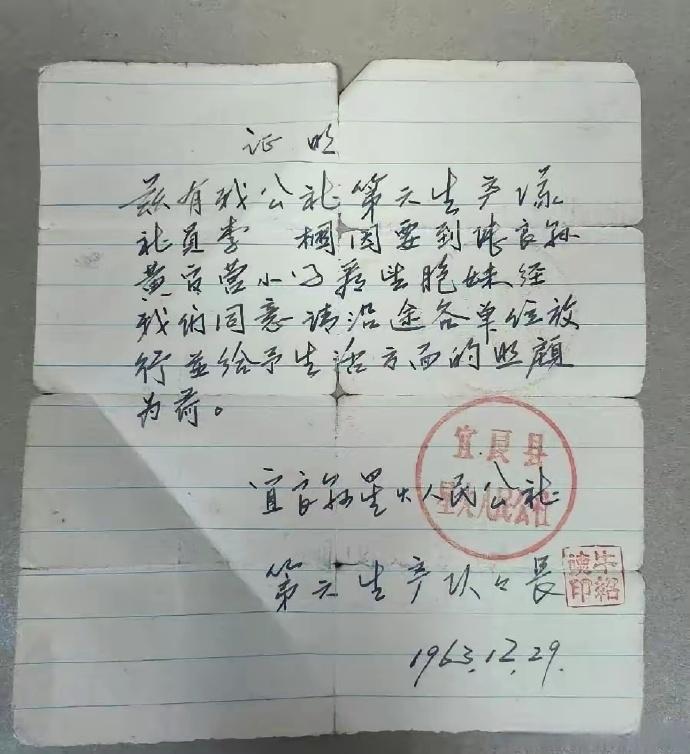 证明
兹有我公社第六生产队
社员李 因要到陆良县
黄官营小 胞妹经
我们同意请沿途各单位放
行並给予生活方面的照顾
为荷。
宜良县
星火人民公社
宜良县星火人民公社
第六生产队 长
牛绍 印
1963.12.29.